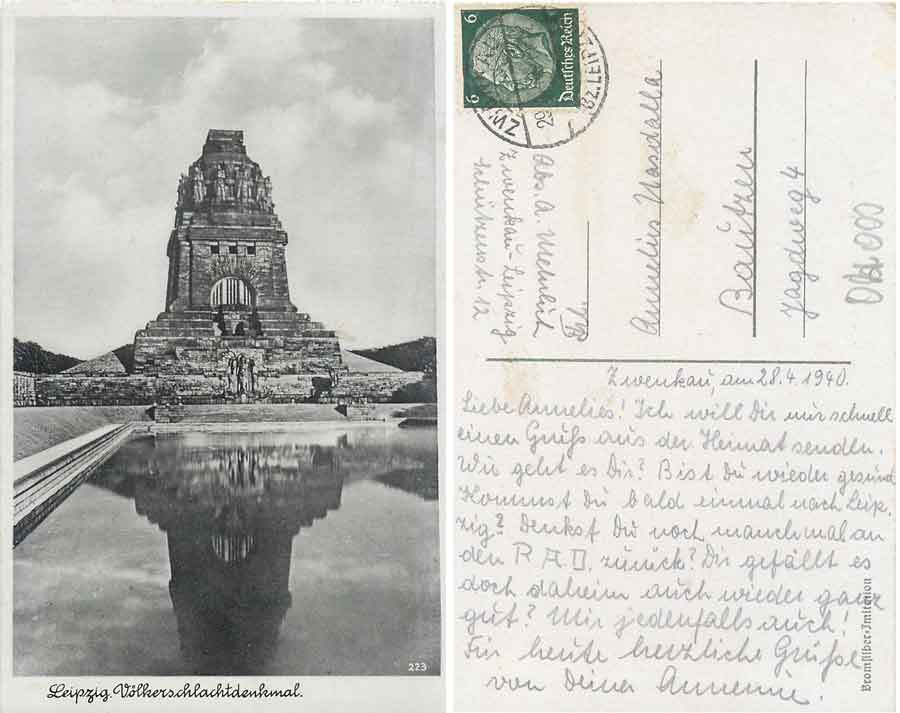 223
Leipzig. Völkerschlachtdenkmal.
6 6
Deutsches Reich
Abs. A.
Zwenkau-Leipzig
Schützenstr. 12
Annelies
Bautzen
Jagdweg 4
Zwenkau, am 28.4.1940.
Liebe Annelies! Ich will Dir nur schnell
einen Gruß aus der Heimat senden.
Wie geht es Dir? Bist Du wieder gesund
Kommst Du bald einmal nach Leip,
zig? Denkst Du noch manchmal an
den R A D. zurück? Dir gefällt es
doch daheim auch wieder ganz
gut? Mir jedenfalls auch!
Für heute herzliche Grüße
von Deiner Annemie.
Bromsilber-Imitation